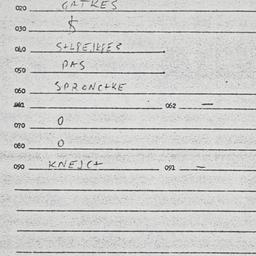 020 GATKES
030 $
040 S
050 PAS
060 SPRONCKE
061 062 —
070 0
080 0
090 KNEJC+ 091 —